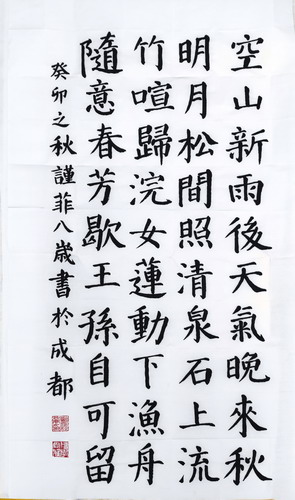 空山新雨後天氣晚來秋
明月松間照清泉石上流
竹喧歸浣女蓮動下漁舟
隨意春芳歇王孫自可留
癸卯之秋謹菲八歲書於成都